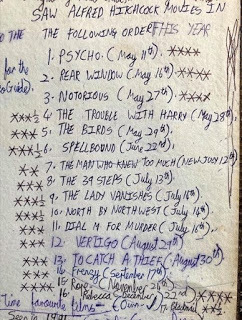 SAW ALFRED HITCHCOCK MOVIES IN
THE FOLLOWING ORDER THIS YEAR
1. PSYCHO. (May 11th). ****
2. REAR WINDOW (May 16th). ****
for the
3. NOTORIOUS (May 27th). ****
Guide).
***½ 4. THE TROUBLE WITH HARRY (May 28th).
***½ 5. THE BIRDS (May 29th).
***½ 6. SPELLBOUND (June 22nd).
*** 7. THE MAN WHO KNEW TOO MUCH (NEW JUN 12th)
*** 8. THE 39 STEPS (July 13th).
***½ 9. THE LADY VANISHES (July 14th).
***½ 10. NORTH BY NORTHWEST (July 16th).
*** 11. DIAL M FOR MURDER (July 16th).
**** 12. VERTIGO (August 29th)
*** 13. TO CATCH A THIEF (August 30th)
***½ 14. Frenzy (September 17th)
***½ 15. Rope (November 26th)
**** 16. Rebecca (December 22nd)
Time favourite films (Own